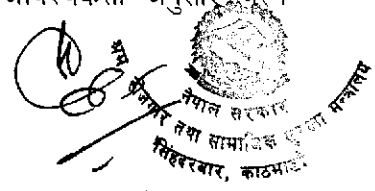 अनुसार
नेपाल सरकार
श्रम रोजगार तथा सामाजिक सुरक्षा मन्त्रालय
सिंहदरबार, काठमाडौं